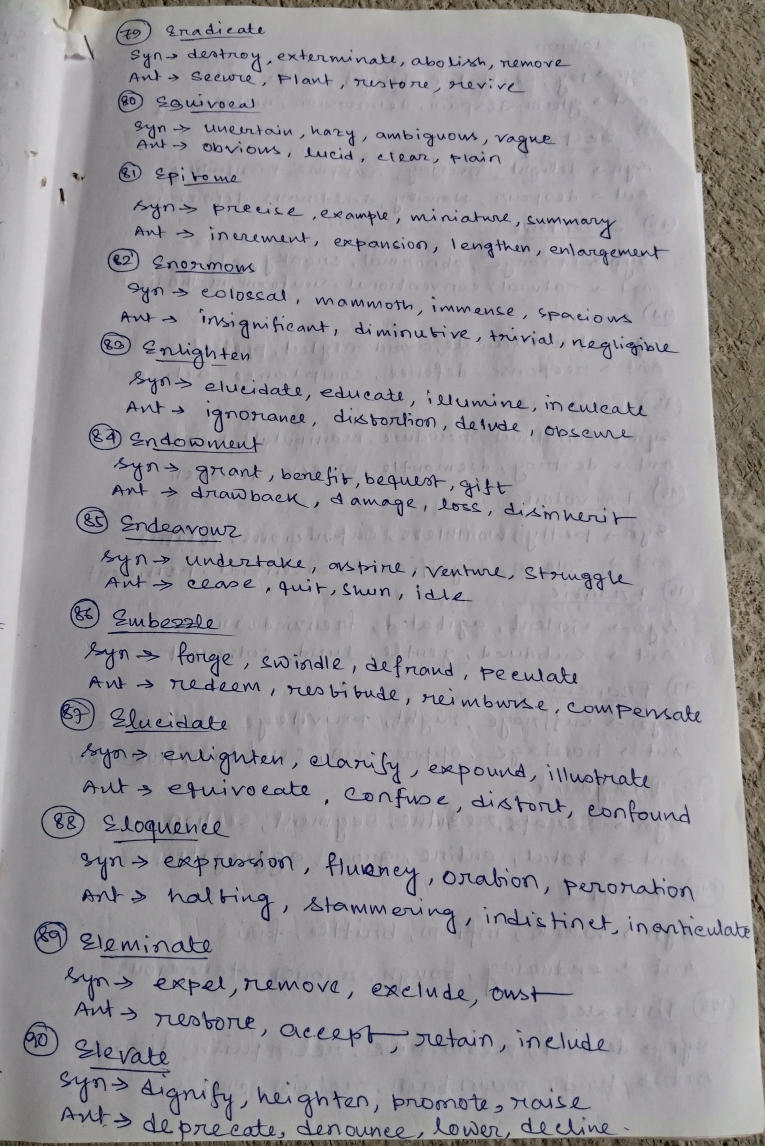 79 Eradicate
Syn → destroy, exterminate, abolish, remove
Ant → Secure, Plant, restore, revive
80 Equivocal
Syn → uncertain, hazy, ambiguous, vague
Ant → obvious, lucid, clear, plain
81 Epitome
Syn → precise, example, miniature, summary
Ant → increment, expansion, lengthen, enlargement
82 Enormous
Syn → colossal, mammoth, immense, spacious
Ant → insignificant, diminutive, trivial, negligible
83 Enlighten
Syn → elucidate, educate, illumine, inculcate
Ant → ignorance, distortion, delude, obscure
84 Endowment
Syn → grant, benefit, bequest, gift
Ant → drawback, damage, loss, disinherit
85 Endeavour
Syn → undertake, aspire, venture, struggle
Ant → cease, quit, shun, idle
86 Embezzle
Syn → forge, swindle, defraud, peculate
Ant → redeem, restitude, reimburse, compensate
87 Elucidate
Syn → enlighten, clarify, expound, illustrate
Ant → equivocate, confuse, distort, confound
88 Eloquence
Syn → expression, fluency, oration, peroration
Ant → halting, stammering, indistinct, inarticulate
89 Eleminate
Syn → expel, remove, exclude, oust
Ant → restore, accept, retain, include
90 Elevate
Syn → dignify, heighten, promote, raise
Ant → deprecate, denounce, lower, decline.